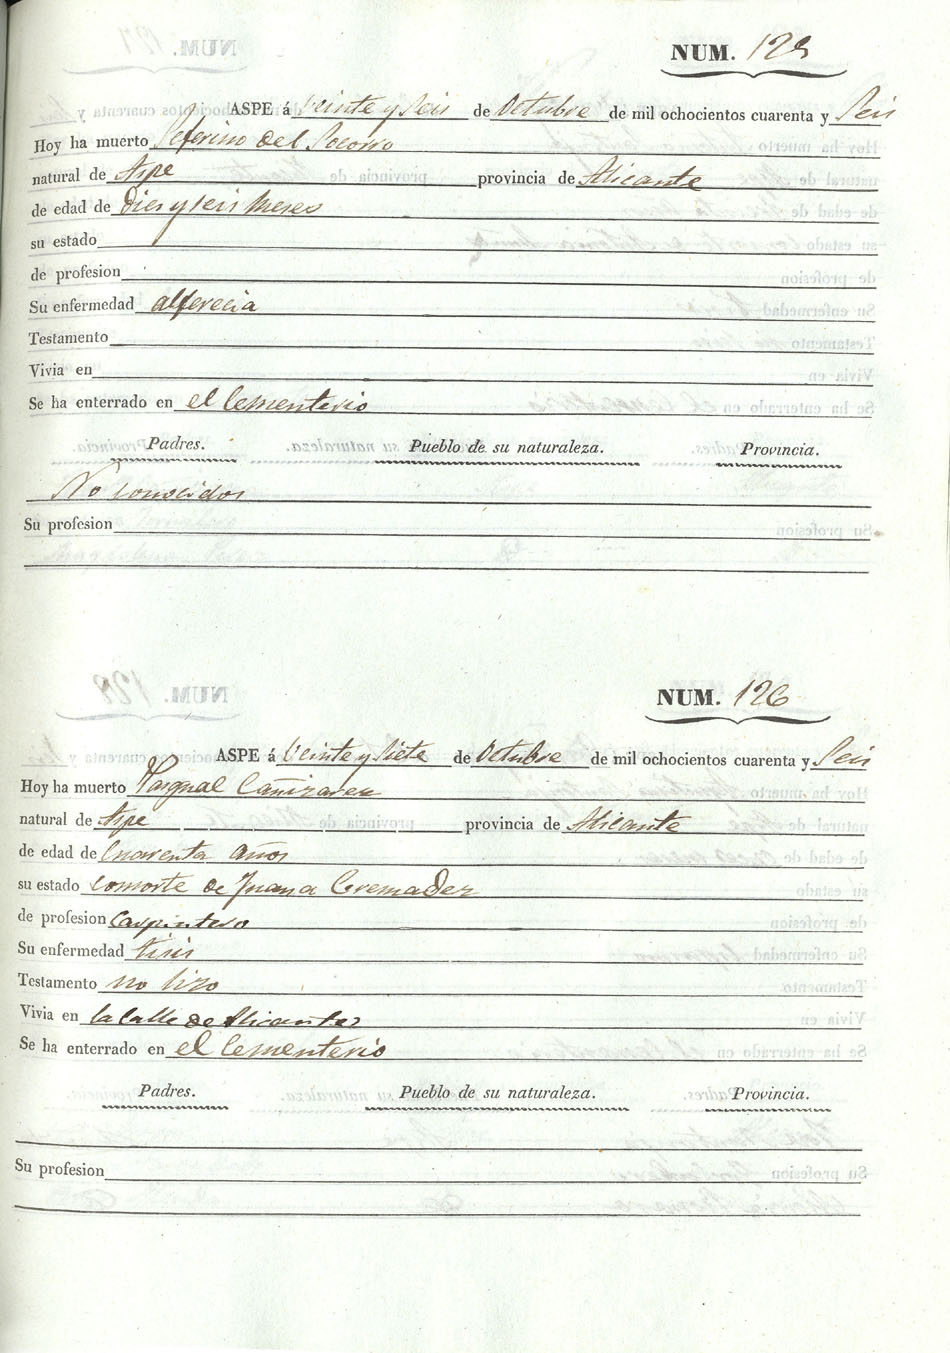 NUM. 125
ASPE á Veinte y Seis de Octubre de mil ochocientos cuarenta y Seis
Hoy ha muerto Seferino del Socorro
natural de Aspe provincia de Alicante
de edad de Dies y seis meses
su estado
de profesion
Su enfermedad alferecia
Testamento
Vivia en
Se ha enterrado en el Cementerio
Padres. Pueblo de su naturaleza. Provincia.
No conocidos
Su profesion
NUM. 126
ASPE á Veinte y Siete de Octubre de mil ochocientos cuarenta y Seis
Hoy ha muerto Pasqual Cañizares
natural de Aspe provincia de Alicante
de edad de Cuarenta años
su estado consorte de Juana Cremadez
de profesion Carpintero
Su enfermedad tisis
Testamento no hizo
Vivia en la Calle de Alicante
Se ha enterrado en el Cementerio
Padres. Pueblo de su naturaleza. Provincia.
Su profesion